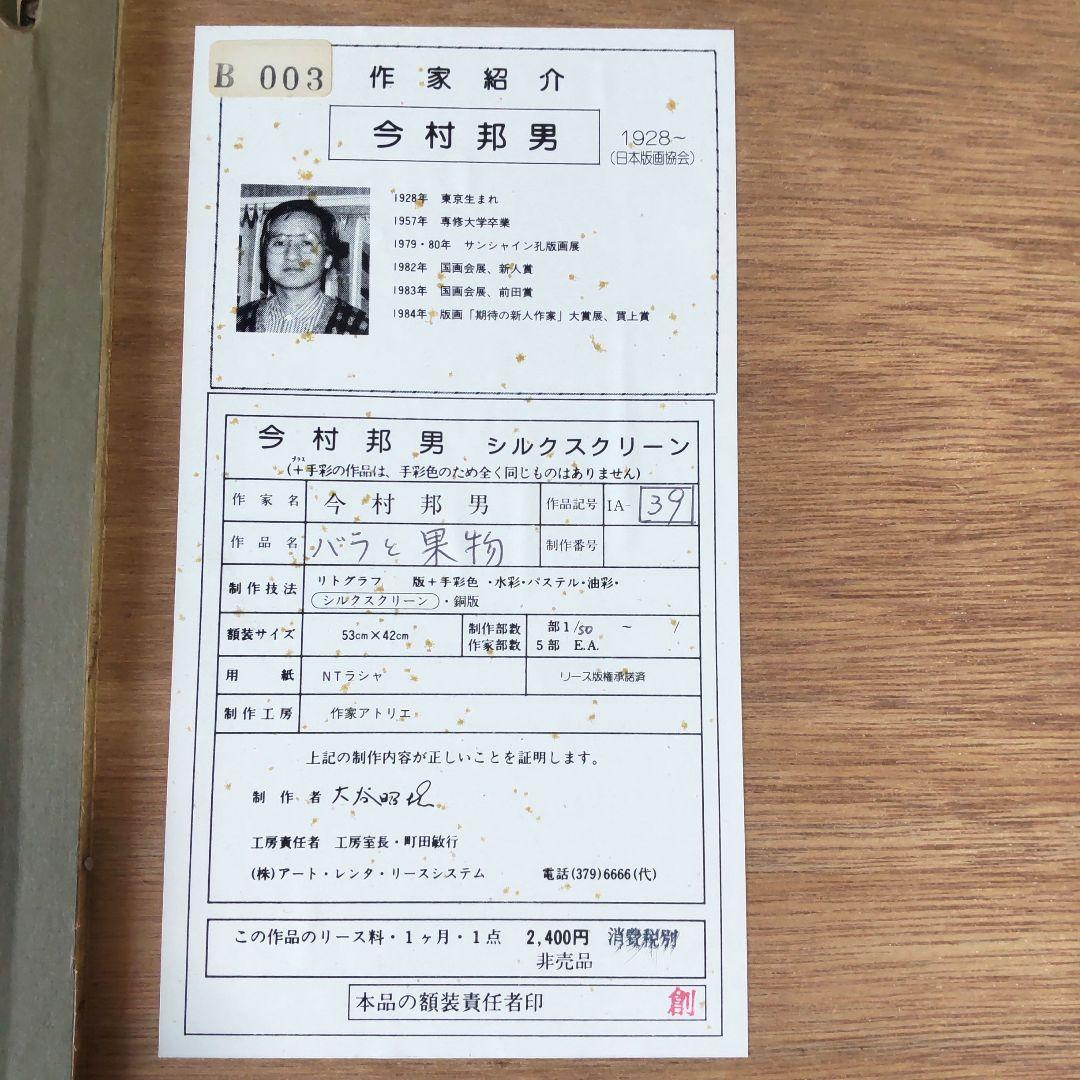 B 003
作家紹介
今村邦男
1928～
(日本版画協会)
1928年 東京生まれ
1957年 専修大学卒業
1979・80年 サンシャイン孔版画展
1982年 国画会展、新人賞
1983年 国画会展、前田賞
1984年 版画「期待の新人作家」大賞展、買上賞
今村邦男 シルクスクリーン
プラス
(+手彩の作品は、手彩色のため全く同じものはありません)
作家名 今村邦男 作品記号 IA- 39
作品名 バラと果物 制作番号
制作技法 リトグラフ 版+手彩色・水彩・パステル・油彩・
シルクスクリーン・銅版
額装サイズ 53cm×42cm 制作部数 部1/50 ～ /
作家部数 5部 E.A.
用紙 NTラシャ リース版権承諾済
制作工房 作家アトリエ
上記の制作内容が正しいことを証明します。
制作者 大谷昭
工房責任者 工房室長・町田敏行
(株)アート・レンタ・リースシステム 電話(379)6666(代)
この作品のリース料・1ヶ月・1点 2,400円 消費税別
非売品
本品の額装責任者印 創